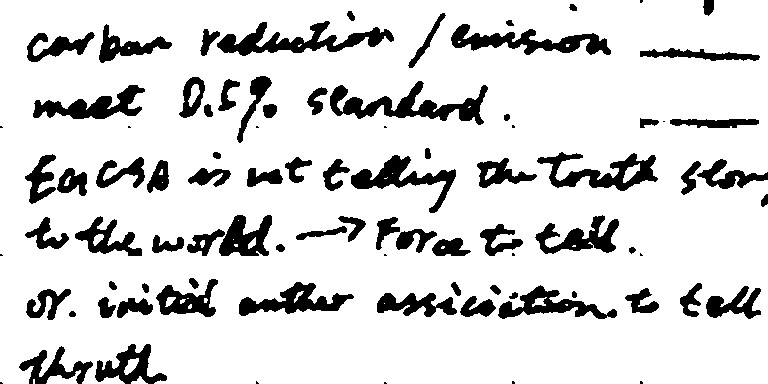 carbon reduction / emission
meet 0.5% standard.
EGCSA is not telling the trouth story
to the world. → Force to tell.
or. initial anther assiciation. to tell
thruth